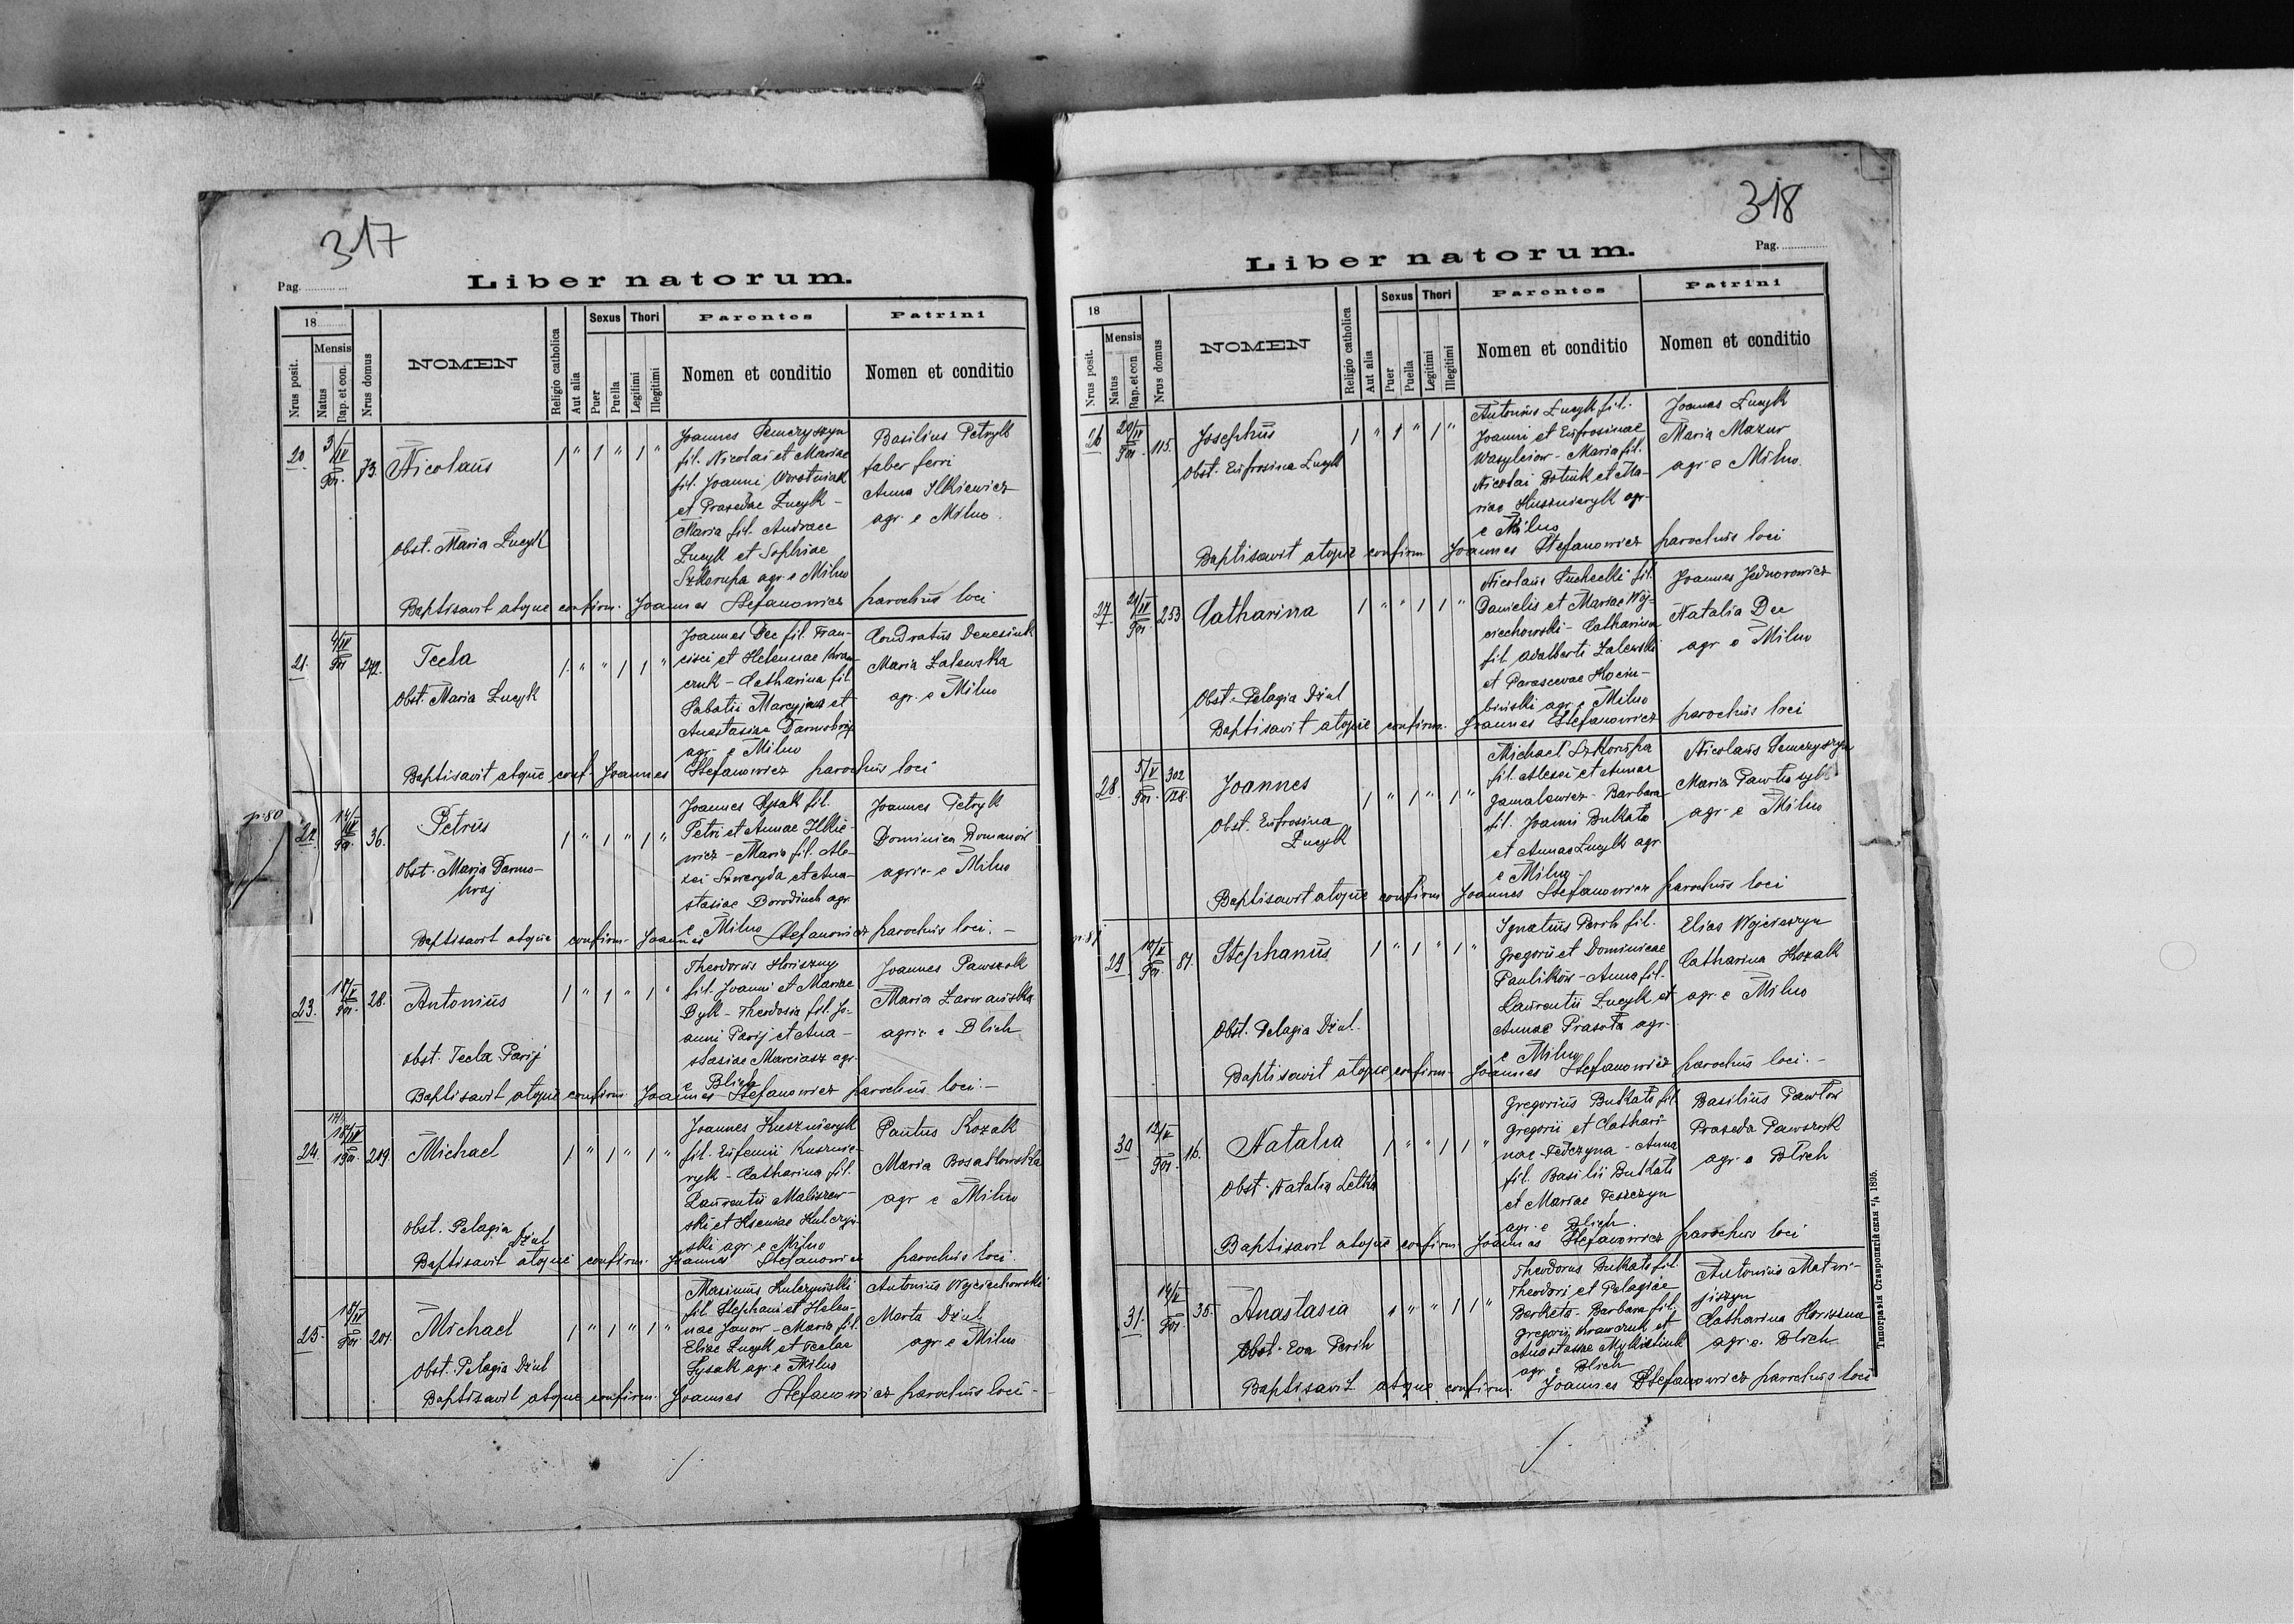 317
Pag.
Liber natorum.
18
Nrus posit.
Mensis
Natus
Bap. et con.
Nrus domus
NOMEN
Religio catholica
Aut alia
Sexus
Puer
Puella
Thori
Legitimi
Illegitimi
Parentes
Nomen et conditio
Patrini
Nomen et conditio
20
3/IV
901.
73.
Nicolaus
Obst. Maria Łucyk
1 " 1 " 1 "
Joannes Semczyszyn
fil. Nicolai et Mariae
fil. Joanni Worotniak
et Praxedae Łucyk –
Maria fil. Andreae
Łucyk et Sophiae
Szkorupa agr. e Milno
Basilius Petryk
faber ferri
Anna Ilkiewicz
agr. e Milno.
Baptisavit atque confirm. Joannes Stefanowicz parochus loci
21.
4/IV
901
242.
Tecla
Obst. Maria Łucyk
1 " " 1 1 "
Joannes Dec fil. Fran-
cisci et Helennae Kraw-
czuk – Catharina fil.
Sabatii Marcyjasz et
Anastasiae Darmohraj
agr. e Milno
Condratus Denesiuk
Maria Zalewska
agr. e Milno
Baptisavit atque conf. Joannes Stefanowicz parochus loci
p. 80
22.
14/IV
901.
36.
Petrus
Obst. Maria Darmo-
hraj
1 " 1 " 1 "
Joannes Łysak fil.
Petri et Annae Ilkie-
wicz – Maria fil. Ale-
xei Szweryda et Ana-
stasiae Borodiuch agr.
e Milno
Joannes Petryk
Dominica Romanów
agric. e Milno
Baptisavit atque confirm. Joannes Stefanowicz parochus loci. –
23.
901.
28.
Antonius
Obst. Tecla Parij
1 " 1 " 1 "
Theodorus Horiszny
fil. Joanni et Mariae
Byk – Theodosia fil. Jo-
anni Parij et Ana-
stasiae Marciasz agr.
e Blich
Joannes Pawszok
Maria Zarwańska
agric. e Blich
Baptisavit atque confirm. Joannes Stefanowicz parochus loci. –
24.
1901.
209.
Michael
Obst. Pelagia
Dziul
1 " 1 " 1 "
Joannes Kusznieryk
fil. Eufemii Kusznie-
ryk – Catharina fil.
Laurentii Maliszew-
ski et Kseniae Kulczyń-
ski agr. e Milno
Pantus Kozak
Maria Bosakowska
agr. e Milno
Baptisavit atque confirm. Joannes Stefanowicz parochus loci
25.
18/IV
901
201.
Michael
Obst. Pelagia Dziul
1 " 1 " 1 "
Maximus Kulczyński
fil. Stephani et Helen-
nae Janow – Maria fil.
Eliae Łucyk et Teclae
Łysak agr. e Milno
Antonius Wojciechowski
Marta Dziul
agr. e Milno
Baptisavit atque confirm. Joannes Stefanowicz parochus loci –
318
Pag.
Liber natorum.
18
Nrus posit.
Mensis
Natus
Bap. et con
Nrus domus
NOMEN
Religio catholica
Aut alia
Sexus
Puer
Puella
Thori
Legitimi
Illegitimi
Parentes
Nomen et conditio
Patrini
Nomen et conditio
26
20/IV
901.
115.
Josephus
Obst. Eufrosina Łucyk
1 " 1 " 1 "
Antonius Łucyk fil.
Joanni et Eufrosinae
Wasylciow – Maria fil.
Nicolai Botiuk et Ma-
riae Kusznieryk agr.
e Milno
Joannes Łucyk
Maria Mazur
agr. e Milno.
Baptisavit atque confirm. Joannes Stefanowicz parochus loci
27
21/IV
901.
253
Catharina
Obst. Pelagia Dziul
1 " " 1 1 "
Nicolaus Suchecki fil.
Danielis et Mariae Woj-
ciechowski – Catharina
fil. Adalberti Zalewski
et Parascevae Kociu-
biński agr. e Milno
Joannes Jednorowicz
Natalia Dec
agr. e Milno
Baptisavit atque confirm. Joannes Stefanowicz parochus loci
28.
5/V
901.
302
128.
Joannes
Obst. Eufrosina
Łucyk
1 " 1 " 1 "
Michael Szkorupa
fil. Alexei et Annae
Jamalewicz – Barbara
fil. Joanni Bukato
et Annae Łucyk agr.
e Milno –
Nicolaus Semczyszyn
Maria
agr. e Milno
Baptisavit atque confirm. Joannes Stefanowicz parochus loci
p. 81
29
10/V
901.
81.
Stephanus
Obst. Pelagia Dziul.
1 " 1 " 1 "
Ignatius Perih fil.
Gregorii et Dominicae
Paulików – Anna fil.
Laurentii Łucyk et
Annae Prasota agr.
e Milno
Elias Wojciszyn
Catharina Kozak
agr. e Milno
Baptisavit atque confirm. Joannes Stefanowicz parochus loci. –
30
12/V
901.
16.
Natalia
Obst. Natalia Letka
1 " " 1 1 "
Gregorius Bukato fil.
Gregorii et Cathari-
nae Fedczyna – Anna
fil. Basilii Bukato
et Mariae Feszczyn
agr. e Blich.
Basilius Pawłow
Praxeda Pawszok
agr. e Blich
Baptisavit atque confirm. Joannes Stefanowicz parochus loci
31.
14/V
901
35.
Anastasia
Obst. Eva Perih
1 " " 1 1 "
Theodorus Bukato fil.
Theodori et Pelagiae
Berketa – Barbara fil.
Gregorii Krawczuk et
Anastasiae Mykietiuk
agr. e Blich
Antonius Matwi-
jiszyn
Catharina Horiszna
agr. e. Blich
Baptisavit atque confirm. Joannes Stefanowicz parochus loci
Типографія Ставропигійская 1895.